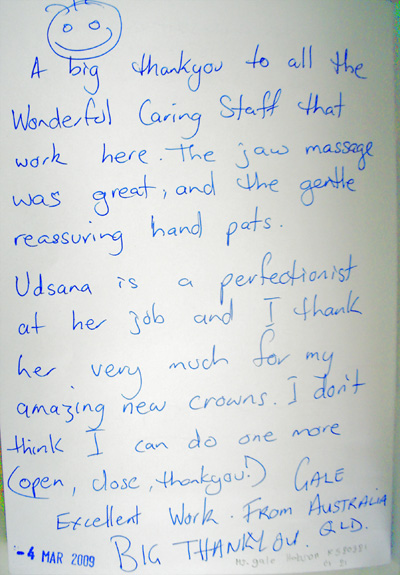 A big thankyou to all the
Wonderful Caring Staff that
work here. The jaw massage
was great, and the gentle
reassuring hand pats.
Udsana is a perfectionist
at her job and I thank
her very much for my
amazing new crowns. I don't
think I can do one more
(open, close, thankyou!) GALE
Excellent Work. FROM AUSTRALIA
-4 MAR 2009 BIG THANKYOU. QLD.
Ms. gale